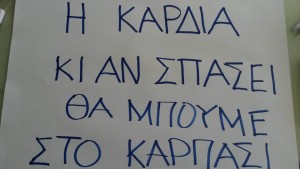 Η ΚΑΡΔΙΑ
ΚΙ ΑΝ ΣΠΑΣΕΙ
ΘΑ ΜΠΟΥΜΕ
ΣΤΟ ΚΑΡΠΑΣΙ